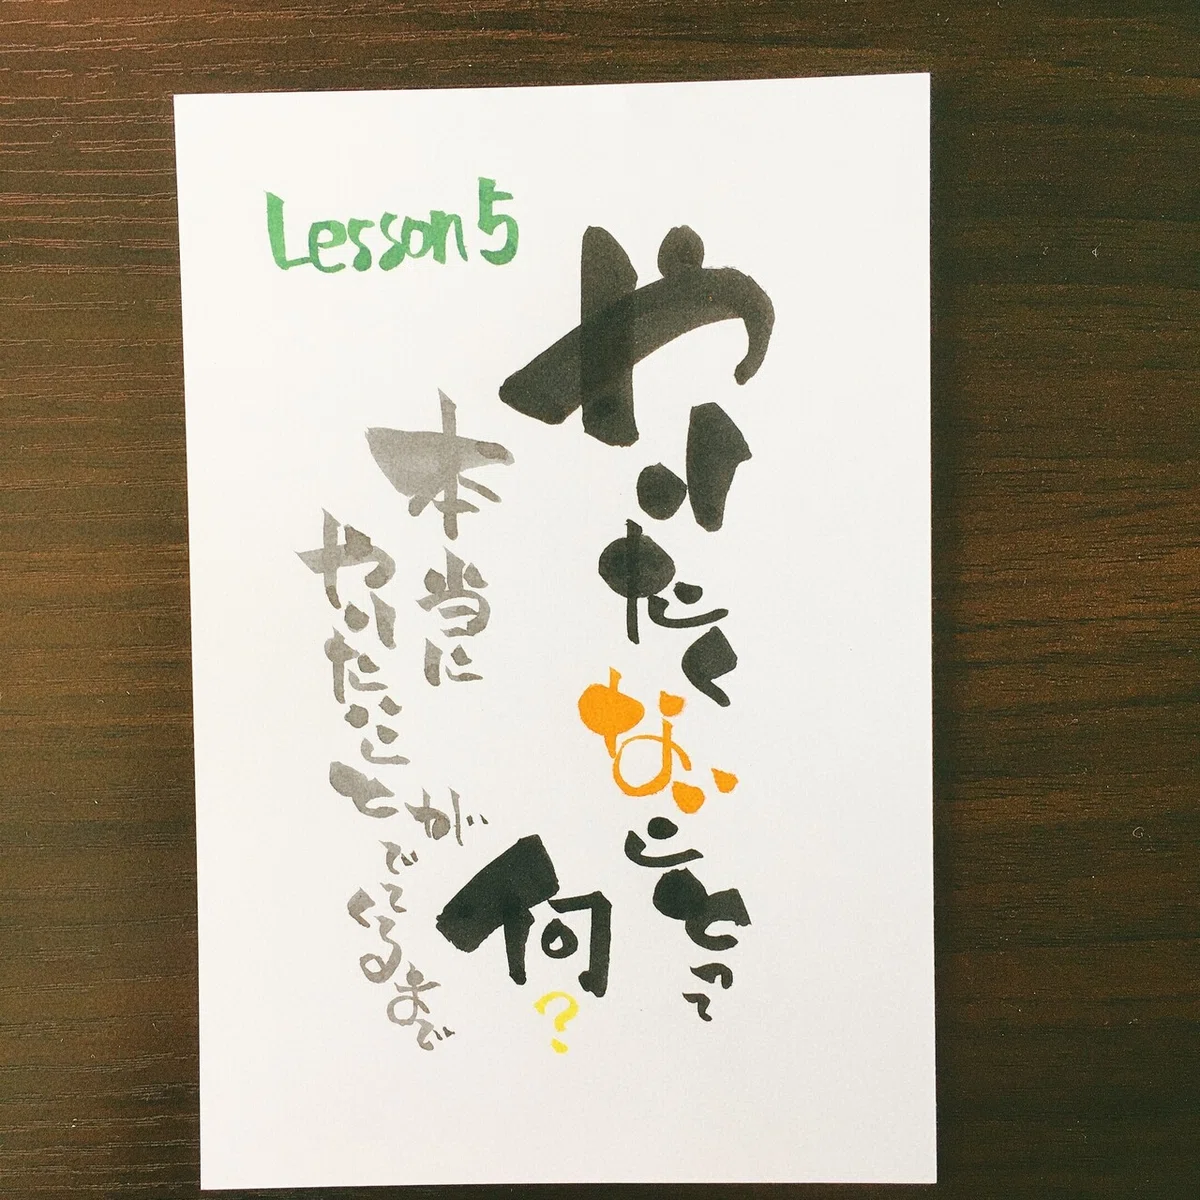 Lesson5
やりたくないことって
何?
本当に
やりたいことが
でてくるまで